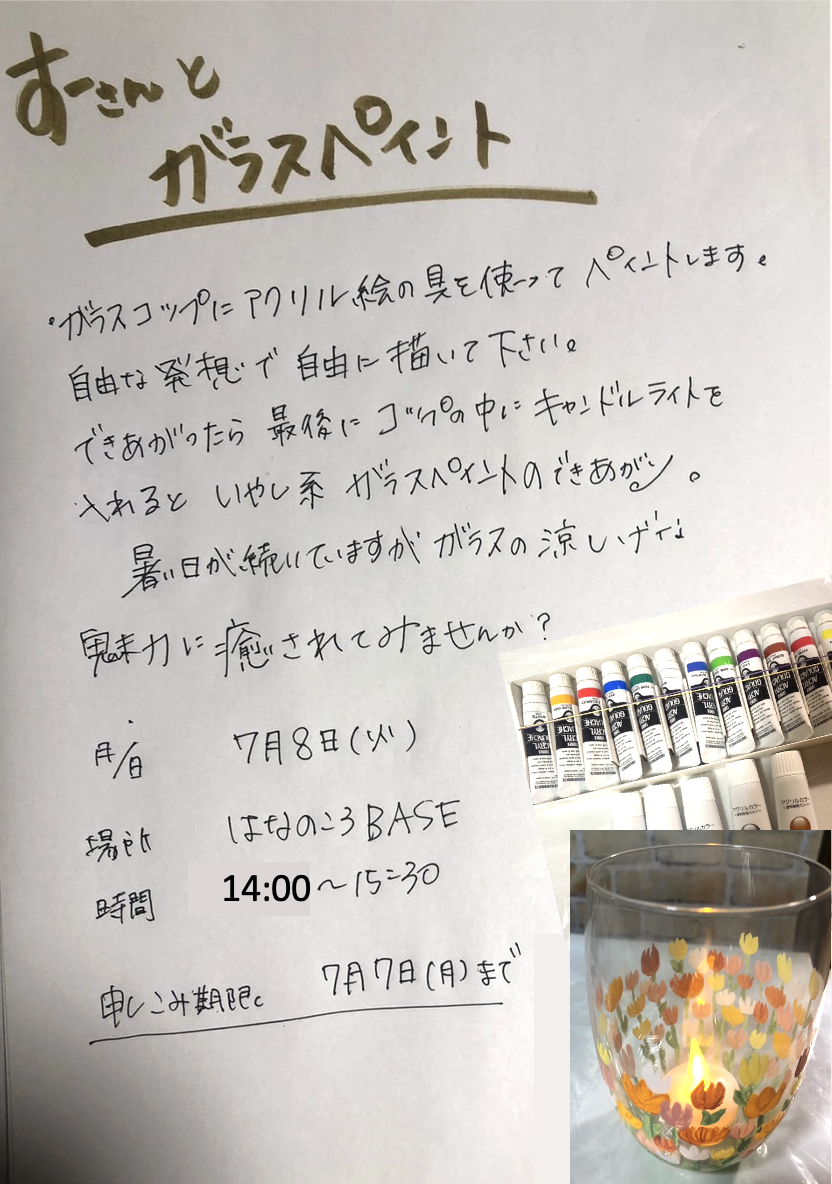 すーさんと
ガラスペイント
・ガラスコップにアクリル絵の具を使ってペイントします。
自由な発想で自由に描いて下さい。
できあがったら最後にコップの中にキャンドルライトを
入れるといやし系ガラスペイントのできあがり。
暑い日が続いていますがガラスの涼しげな
魅力に癒されてみませんか?
月/日 7月8日(火)
場所 はなのころBASE
時間 14:00~15:30
申しこみ期限。 7月7日(月)まで
アクリルカラー
アクリルカラー
ACRYL
GOUACHE